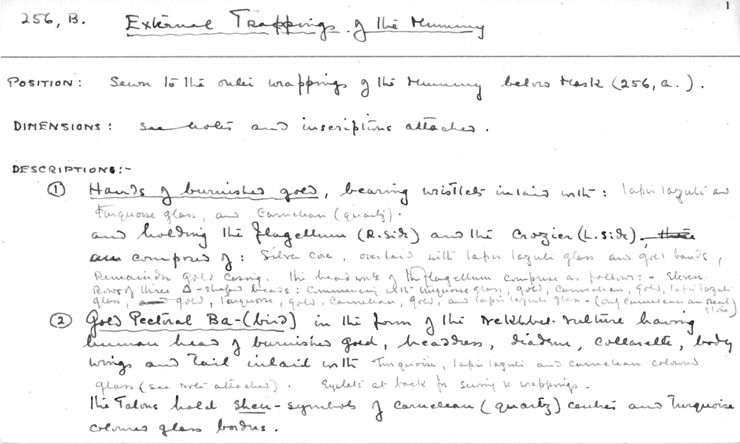 1
256, B. External Trappings of the Mummy
POSITION: Sewn to the outer wrappings of the Mummy below Mask (256, a.).
DIMENSIONS: see notes and inscriptions attached.
DESCRIPTIONS:-
① Hands of burnished gold, bearing wristlets inlaid with: lapis lazuli and
turquoise glass, and carnelian (quartz).
and holding the flagellum (R. side) and the Crozier (L. side), these
are composed of: Silver core, overlaid with lapis lazuli glass and gold bands,
Remainder gold casing. The bead work of the flagellum comprise as follows:- Eleven
Rows of three Δ-shaped beads: Commencing with turquoise glass, gold, carnelian, gold, lapis lazuli
glass, gold, turquoise, gold, carnelian, gold, and lapis lazuli glass - (only carnelian are real
stone)
② Gold Pectoral Ba-(bird) in the form of the Nekhbet-vulture having
human head of burnished gold, headdress, diadem, collarette, body
wings and tail inlaid with turquoise, lapis lazuli and carnelian coloured
glass (see note attached). Eyelets at back for sewing to wrappings.
The Talons hold shen-symbols of carnelean (quartz) centres and turquoise
coloured glass borders.